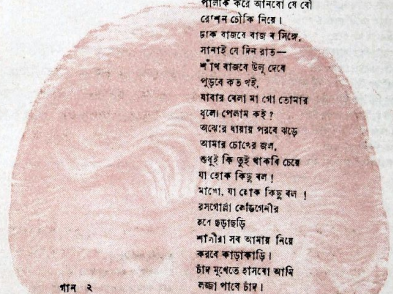 পালকি করে আনবো যে বৌ
রোশন চৌকি নিয়ে।
ঢাক বাজবে বাজ ব সিঙ্গে,
সানাই যে দিন রাত—
শাঁখ বাজবে উলু দেবে
পুড়বে কত খই,
যাবার বেলা মা গো তোমার
ধূলো পেলাম কই?
অঝোর ধারায় পরবে ঝড়ে
আমার চোখের জল,
শুধুই কি তুই থাকবি চেয়ে
যা হোক কিছু বল!
মাগো, যা হোক কিছু বল!
রসগোল্লা লেডিগেনীর
হবে ছড়াছড়ি
শালীরা সব আমায় নিয়ে
করবে কাড়াকাড়ি।
চাঁদ মুখেতে হাসবো আমি
লজ্জা পাবে চাঁদ।
গান ২